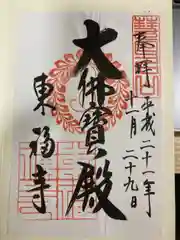 奉拝
平成二十一年
十一月二十九日
大佛寶殿
東福寺